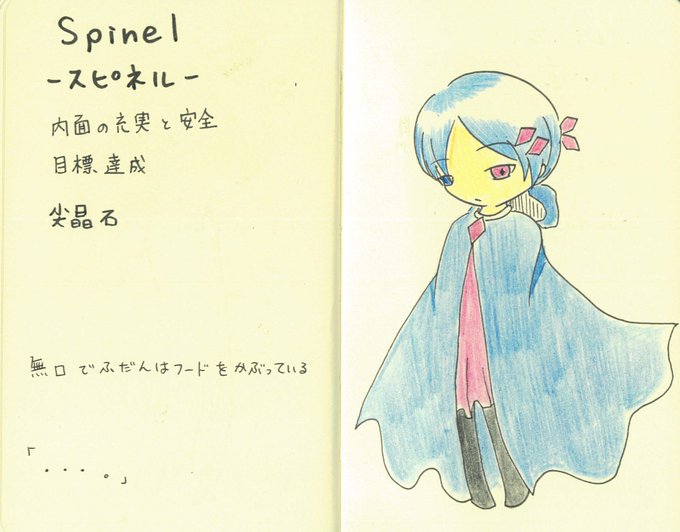 Spinel
-スピネル-
内面の充実と安全
目標達成
尖晶石
無口でふだんはフードをかぶっている
「・・・。」